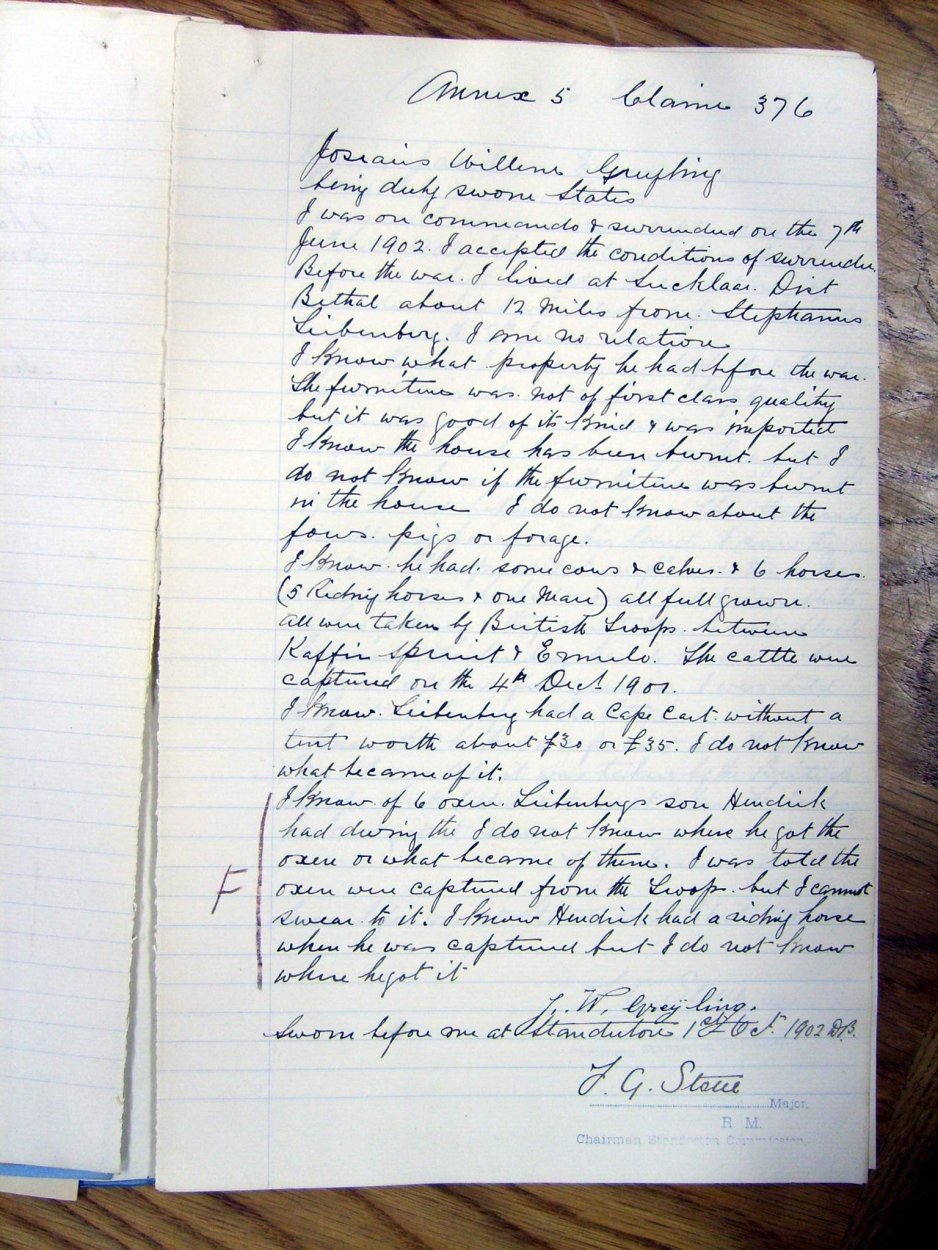 Annex 5 Claim 376
Josiais Willem Greyling
being duly sworn States
I was on commando & surrendered on the 7th
June 1902. I accepted the conditions of surrender.
Before the war. I lived at Dist
Bethal about 12 miles from. Stephanus
Leibenberg. I am no relation
I know what property he had before the war.
The furniture was not of first class quality
but it was good of its kind & was imported
I know the house has been burnt. but I
do not know if the furniture was burnt
in the house I do not know about the
fows. pigs or forage.
I know. he had. some cows & calves. & 6 horses.
(5 Riding horses & one Mare) all full grown.
all were taken by British Troops. between
Kaffir Spruit & Ermelo. The cattle were
captured on the 4th Dect 1901.
I know. Leibenberg had a Cape Cart. without a
tent worth about £30 or £35. I do not know
what became of it.
I know. of 6 oxen. Leibenbergs son Hendrik
had during the I do not know where he got the
oxen or what became of them. I was told the
oxen were captured from the Troops. but I cannot
swear to it. I know Hendrik had a riding horse
F
when he was captured but I do not know
where he got it
J. W. Greyling.
Sworn before me at Standerton 1st Oct. 1902
Major.
R. M.
Chairman Standerton Commission